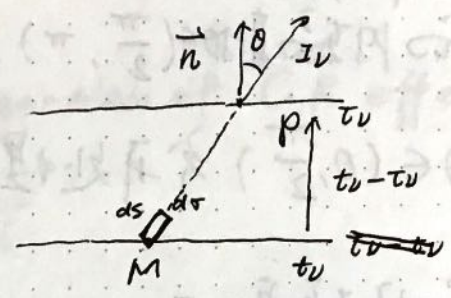 n θ Iν
P τν
tν - τν
ds dσ
M tν